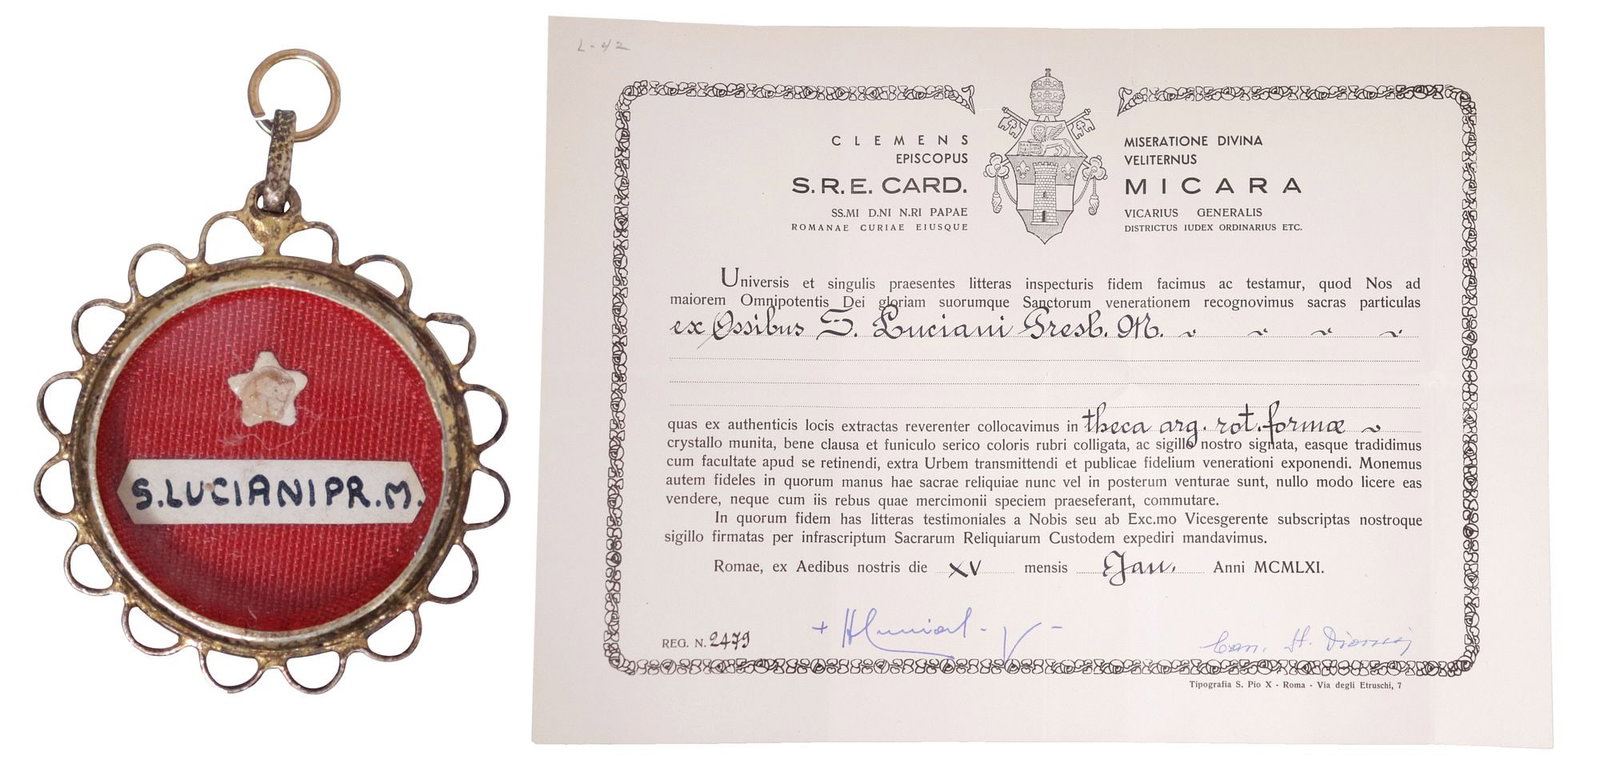 S.LUCIANI PR.M.
L-42
CLEMENS
EPISCOPUS
S.R.E. CARD.
SS.MI D.NI N.RI PAPAE
ROMANAE CURIAE EIUSQUE
MISERATIONE DIVINA
VELITERNUS
MICARA
VICARIUS GENERALIS
DISTRICTUS IUDEX ORDINARIUS ETC.
Universis et singulis praesentes litteras inspecturis fidem facimus ac testamur, quod Nos ad
maiorem Omnipotentis Dei gloriam suorumque Sanctorum venerationem recognovimus sacras particulas
ex Ossibus S. Luciani Presb. M.
quas ex authenticis locis extractas reverenter collocavimus in theca arg. rot. formæ
crystallo munita, bene clausa et funiculo serico coloris rubri colligata, ac sigillo nostro signata, easque tradidimus
cum facultate apud se retinendi, extra Urbem transmittendi et publicae fidelium venerationi exponendi. Monemus
autem fideles in quorum manus hae sacrae reliquiae nunc vel in posterum venturae sunt, nullo modo licere eas
vendere, neque cum iis rebus quae mercimonii speciem praeseferant, commutare.
In quorum fidem has litteras testimoniales a Nobis seu ab Exc.mo Vicesgerente subscriptas nostroque
sigillo firmatas per infrascriptum Sacrarum Reliquiarum Custodem expediri mandavimus.
Romae, ex Aedibus nostris die XV mensis Jan. Anni MCMLXI.
REG. N. 2479
Can. H.
Tipografia S. Pio X - Roma - Via degli Etruschi, 7